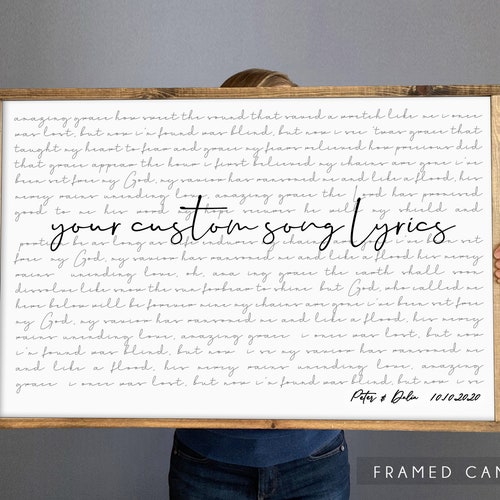 amazing grace how sweet the sound that saved a wretch like me i once
was lost, but now i'm found was blind, but now i see 'twas grace that
taught my heart to fear and grace my fears relieved how precious did
that grace appear the hour i first believed my chains are gone i've
been set free my God, my savior has ransomed me and like a flood, his
mercy rains unending love, amazing grace the Lord has promised
good to his word my hope he will my shield and
your custom song lyrics
as long as chains are been set
free my God, my savior has ransomed me and like a flood his mercy
rains unending love, oh, grace the earth shall soon
dissolve like snow the sun forbear to shine but God, who called me
here below will be forever mine my chains are gone i've been set free
my God, my savior has ransomed me and like a flood, his mercy
rains unending love, amazing grace i once was lost, but now
i'm found was blind, but now i see my savior has ransomed me
and like a flood, his mercy rains unending love, amazing
grace i once was lost, but now i'm found was blind, but now i see
Peter & Dalia 10.10.2020
FRAMED CAN